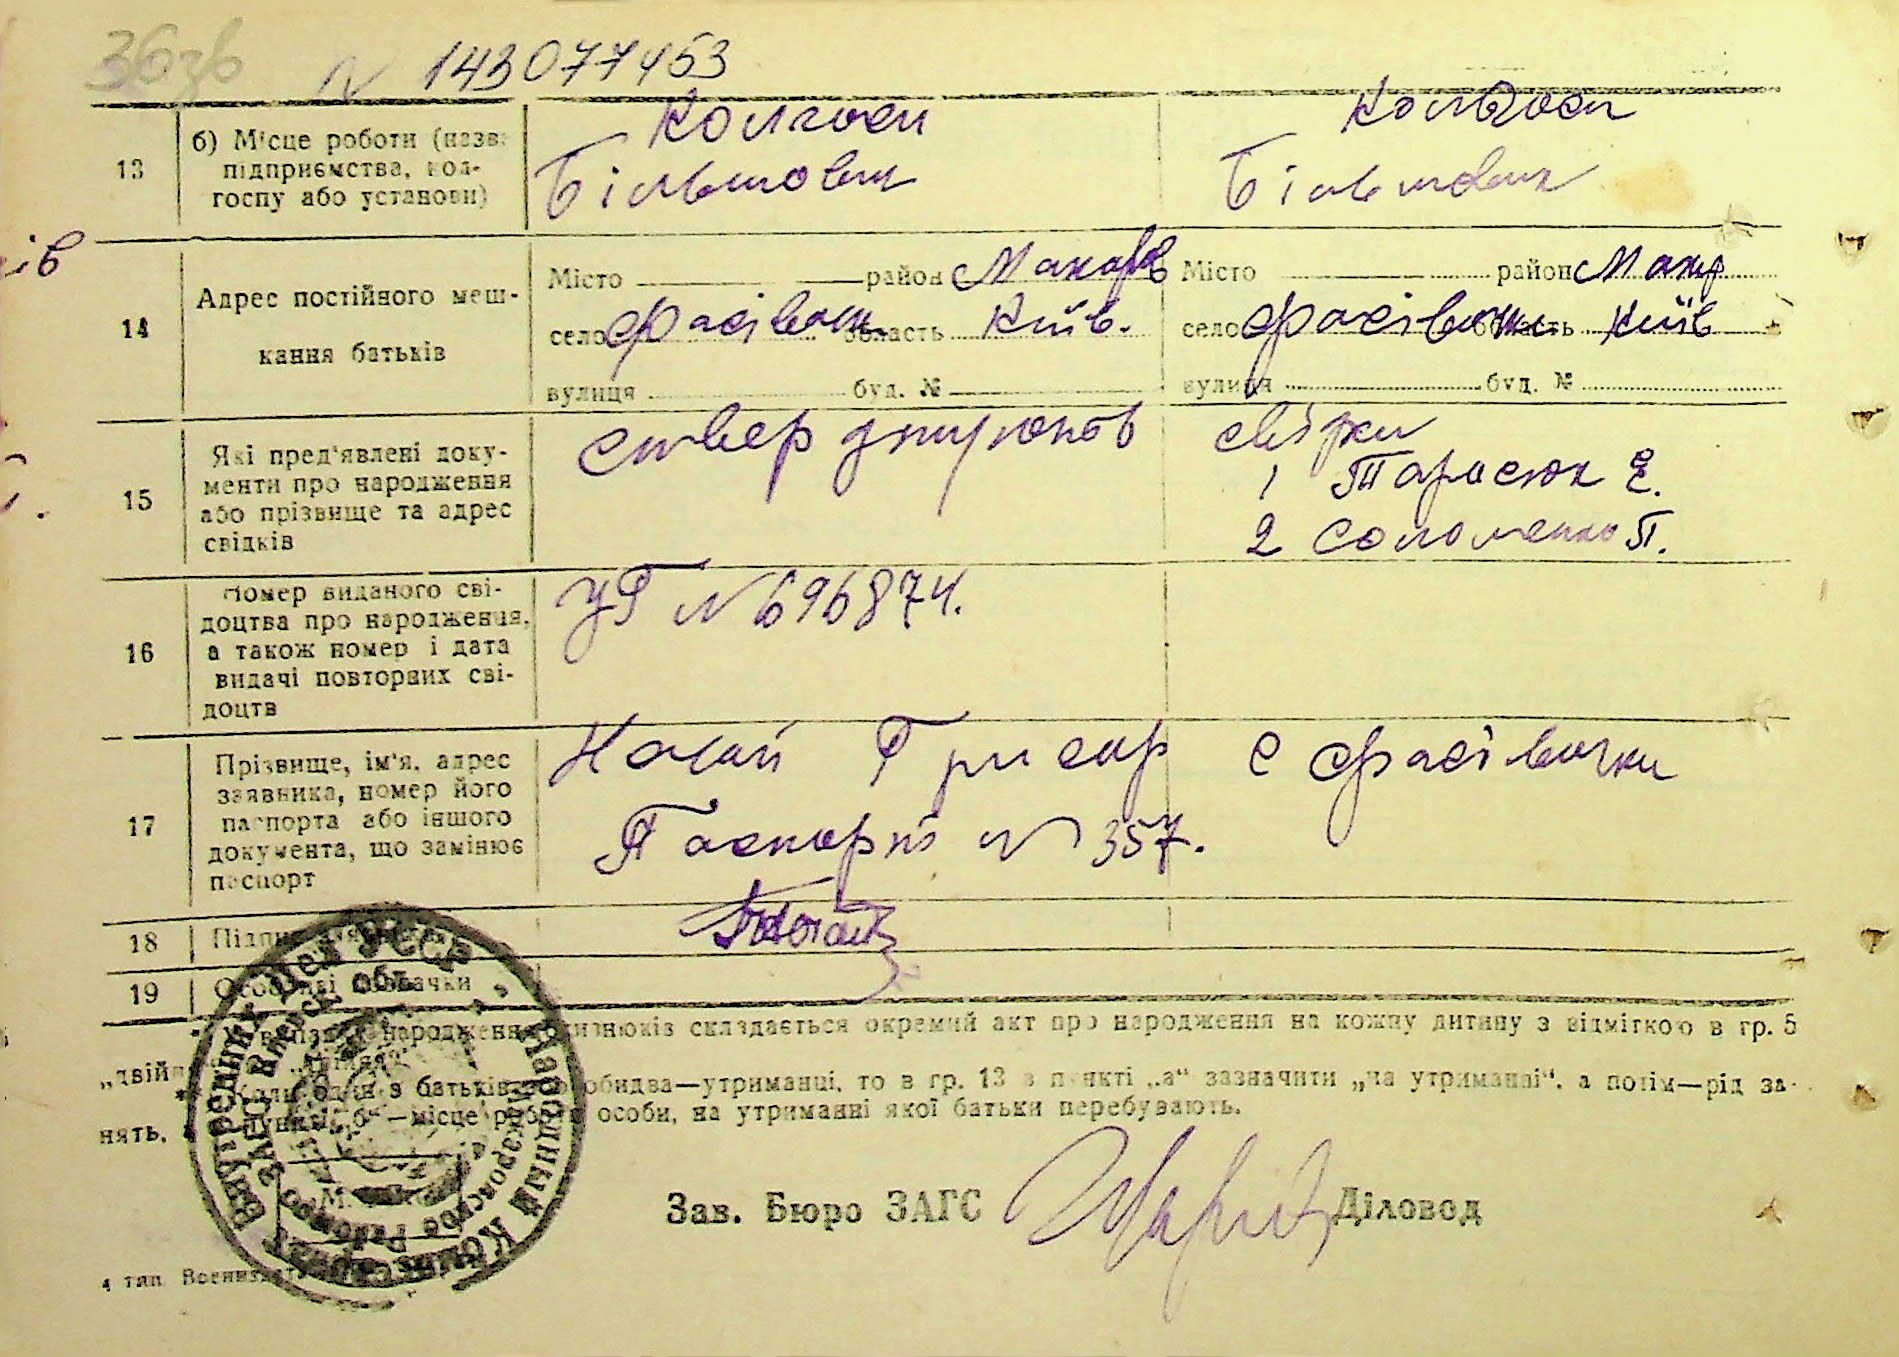 N 143077453
13
б) Місце роботи (назва
підприємства, кол-
госпу або установи)
Колгосп
Більшовик
Колгосп
Більшовик
ів
14
Адрес постійного меш-
кання батьків
Місто район Макарів
село Фасівочк область Київ.
вулиця буд. №
Місто район Макар
село Фасівочк область Київ
вулиця буд. №
15
Які пред'явлені доку-
менти про народження
або прізвище та адрес
свідків
ствер
свідки
1 Тарасюк Є.
2 Соломенко П.
16
Номер виданого сві-
доцтва про народження,
а також номер і дата
видачі повторних сві-
доцтв
УГ N 696874.
17
Прізвище, ім'я, адрес
заявника, номер його
паспорта або іншого
документа, що замінює
паспорт
Ногай Григор с Фасівочки
Паспорт N 357.
18
19
Особливі позначки
народження близнюків складається окремий акт про народження на кожну дитину з відміткою в гр. 5
„двійня",
** Коли один з батьків або обидва—утриманці, то в гр. 13 в пункті „а" зазначити „на утриманні", а потім—рід за-
нять, в пункті „б"—місце роботи особи, на утриманні якої батьки перебувають.
Народный Комиссариат Внутренних Дел УССР
ЗАГС Киевск. обл.
Макаровское Райбюро
М.
Зав. Бюро ЗАГС
Діловод
4 тип. Воениздат